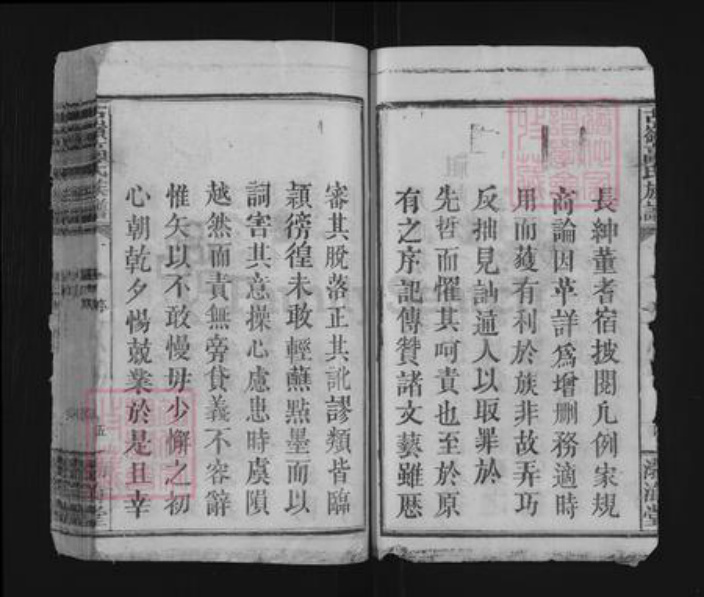 長紳董耆宿披閱凡例家規
商論因革詳爲增刪務適時
用而蘐有利於族非故弄巧
反拙見訕通人以取罪於
先哲而懼其呵責也至於原
有之序記傳贊諸文藝雖歷
審其脫落正其訛謬類皆臨
穎徬徨未敢輕蘸點墨而以
詞害其意操心慮患時虞隕
越然而責無旁貸義不容辭
惟矢以不敢慢毋少懈之初
心朝乾夕惕兢業於是且幸
氏族譜
五
堂